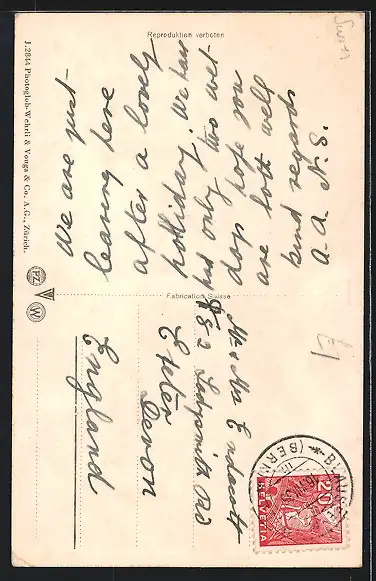 Reproduktion verboten
We are just
leaving here
after a lovely
holliday. We have
had only two wet
days hope you
are both well
kind regards
A. A. N. S.
J. 2844 Photoglob-Wehrli & Vouga & Co. A.G., Zürich.
PZ
V
W
Fabrication Suisse
Mr & Mrs Endacott
82 Ladysmith Rd
Exeter
Devon
England
HELVETIA
20
(BERN)